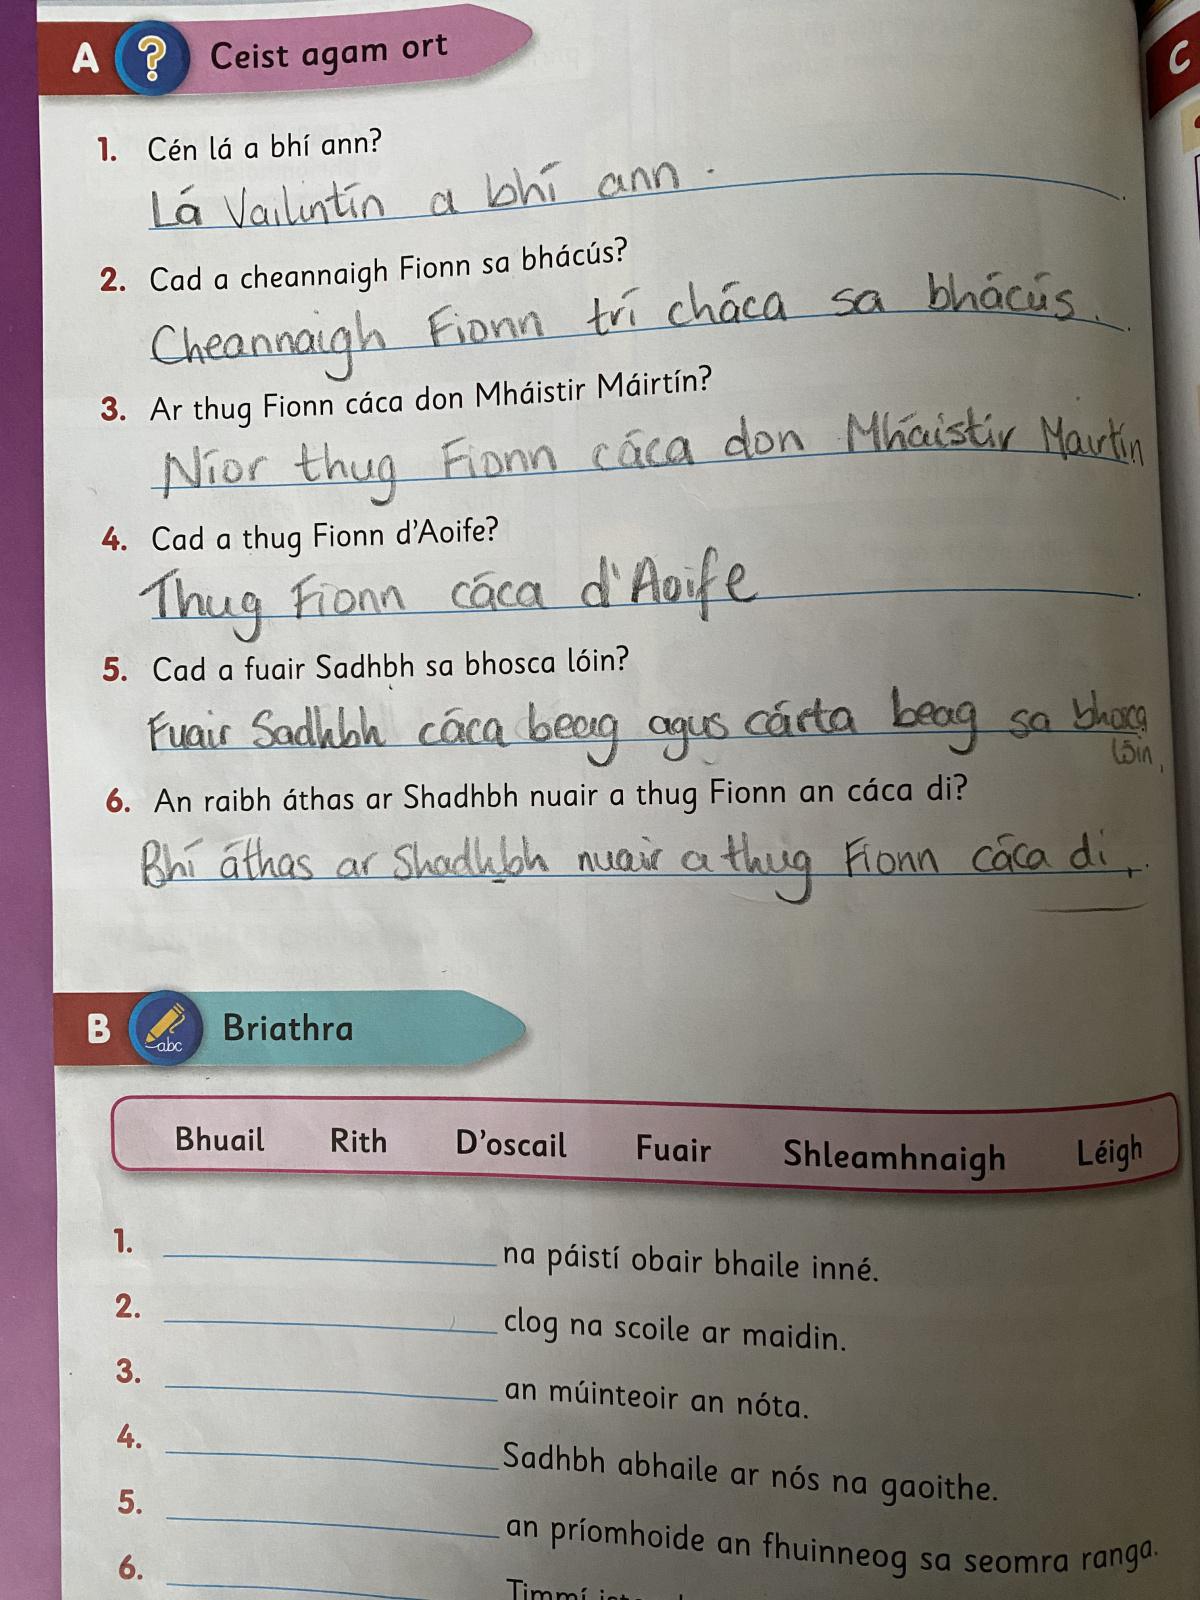 A ? Ceist agam ort
C
1. Cén lá a bhí ann?
Lá Vailintín a bhí ann.
2. Cad a cheannaigh Fionn sa bhácús?
Cheannaigh Fionn trí cháca sa bhácús.
3. Ar thug Fionn cáca don Mháistir Máirtín?
Níor thug Fionn cáca don Mháistir Mairtín
4. Cad a thug Fionn d'Aoife?
Thug Fionn cáca d'Aoife
5. Cad a fuair Sadhbh sa bhosca lóin?
Fuair Sadhbh cáca beag agus cárta beag sa bhosca
lóin,
6. An raibh áthas ar Shadhbh nuair a thug Fionn an cáca di?
Bhí áthas ar Shadhbh nuair a thug Fionn cáca di.
B abc Briathra
Bhuail Rith D'oscail Fuair Shleamhnaigh Léigh
1. na páistí obair bhaile inné.
2. clog na scoile ar maidin.
3. an múinteoir an nóta.
4. Sadhbh abhaile ar nós na gaoithe.
5. an príomhoide an fhuinneog sa seomra ranga.
6. Timmí